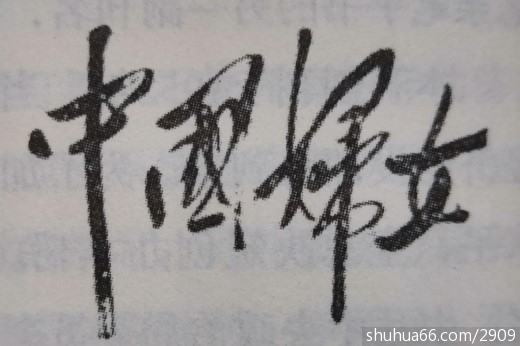 中國婦女
shuhua66.com/2909